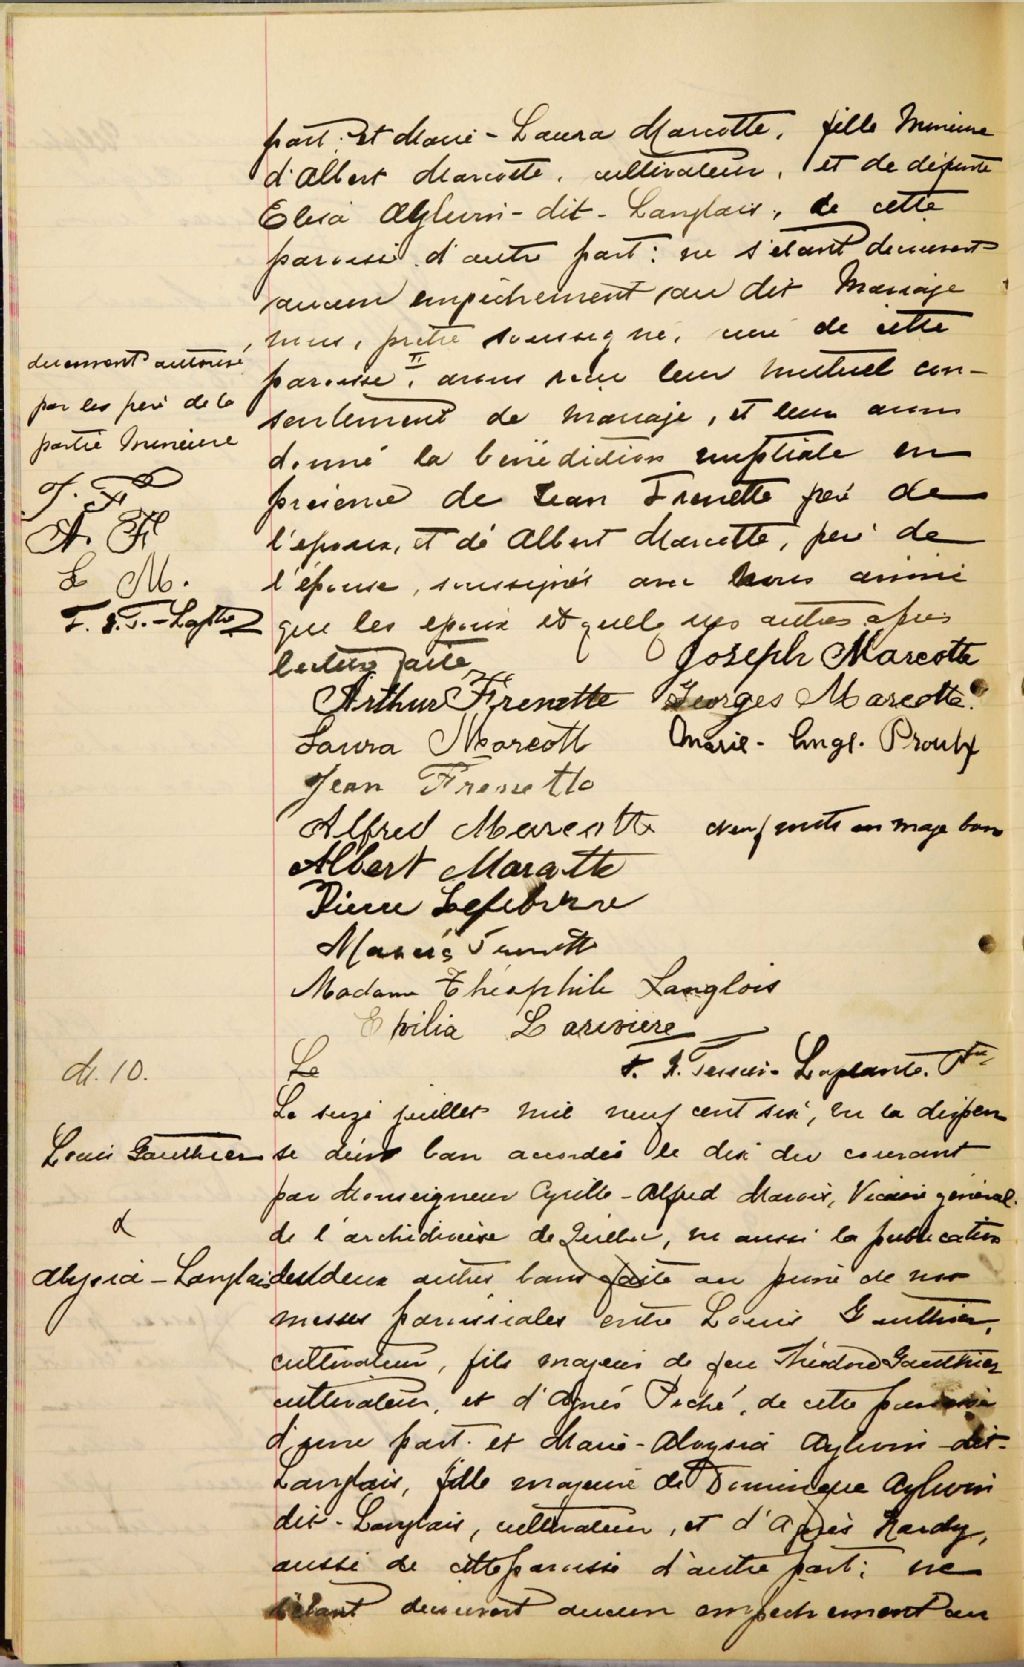 part; et Marie-Laura Marcotte, fille mineure
d'Albert Marcotte, cultivateur, et de défunte
Elisa Aylwin-dit-Langlais, de cette
paroisse d'autre part: ne s'étant découvert
aucun empêchement au dit mariage
nous, prêtre soussigné, curé de cette
paroisse, avons reçu leur mutuel con-
sentement de mariage, et leur avons
donné la bénédiction nuptiale en
présence de Jean Frenette père de
l'époux, et de Albert Marcotte, père de
l'épouse, soussignés avec nous ainsi
que les époux et quelques autres après
lecture faite,
dûment autorisé
par le père de la
partie mineure
J. F.
A. F.
L. M.
F. X. T.-Lapte
Joseph Marcotte
Arthur Frenette Georges Marcotte
Laura Marcott Marie-Angl. Proulx
Jean Frenette
Alfred Marcotte neuf mots en marge bons
Albert Marcotte
Pierre Lefebvre
Frenette
Madame Théophile Langlois
Lariviere
Le F. X. Tessier-Laplante. Ptre
M. 10.
Louis Gauthier
&
Alysia-Langlais
Le seize juillet mil neuf cent six, vu la dispen
se d'un ban accordée le dix du courant
par Monseigneur Cyrille-Alfred Marois, Vicaire général
de l'archidiocèse de Québec, vu aussi la publication
des deux autres bans faite au prône de nos
messes paroissiales entre Louis Gauthier,
cultivateur, fils majeur de feu Théodore Gauthier
cultivateur, et d'Agnés Piché, de cette paroisse
d'une part. et Marie-Aloysia Aylwin-dit-
Langlais, fille majeure de Dominique Aylwin
dit-Langlais, cultivateur, et d'Agnès Hardy,
aussi de cette paroisse d'autre part; ne
s'étant découvert aucun empêchement au